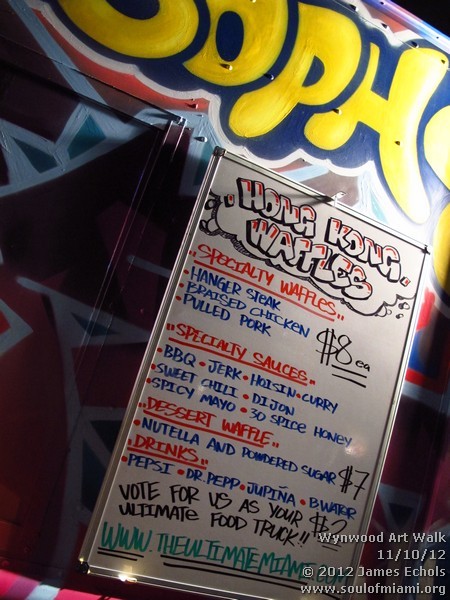 SOPH
HONG KONG
WAFFLES
"SPECIALTY WAFFLES"
• HANGER STEAK
• BRAISED CHICKEN
• PULLED PORK
$8 ea
"SPECIALTY SAUCES"
• BBQ • JERK • HOISIN • CURRY
• SWEET CHILI • DIJON
• SPICY MAYO • 30 SPICE HONEY
"DESSERT WAFFLE"
• NUTELLA AND POWDERED SUGAR $7
"DRINKS"
• PEPSI • DR. PEPP • JUPIÑA • B. WATER
$2
VOTE FOR US AS YOUR
ULTIMATE FOOD TRUCK!!
WWW.THEULTIMATEMIAMI.COM
Wynwood Art Walk
11/10/12
© 2012 James Echols
www.soulofmiami.org